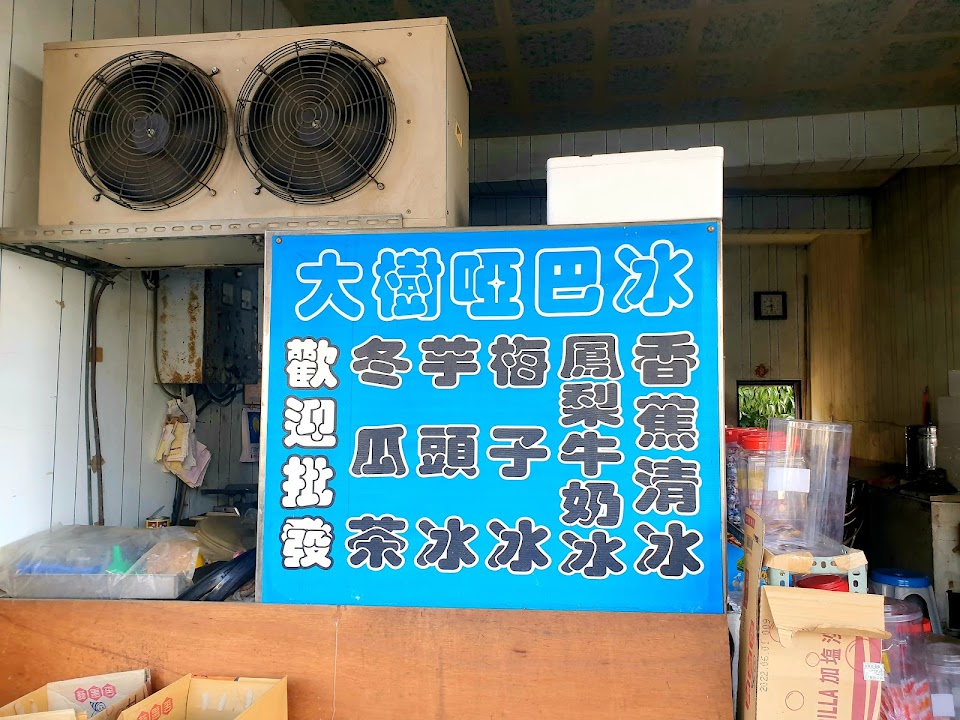 大樹啞巴冰
香蕉清冰
鳳梨牛奶冰
梅子冰
芋頭冰
冬瓜茶
歡迎批發
2022.06.01
ILLA 加塩